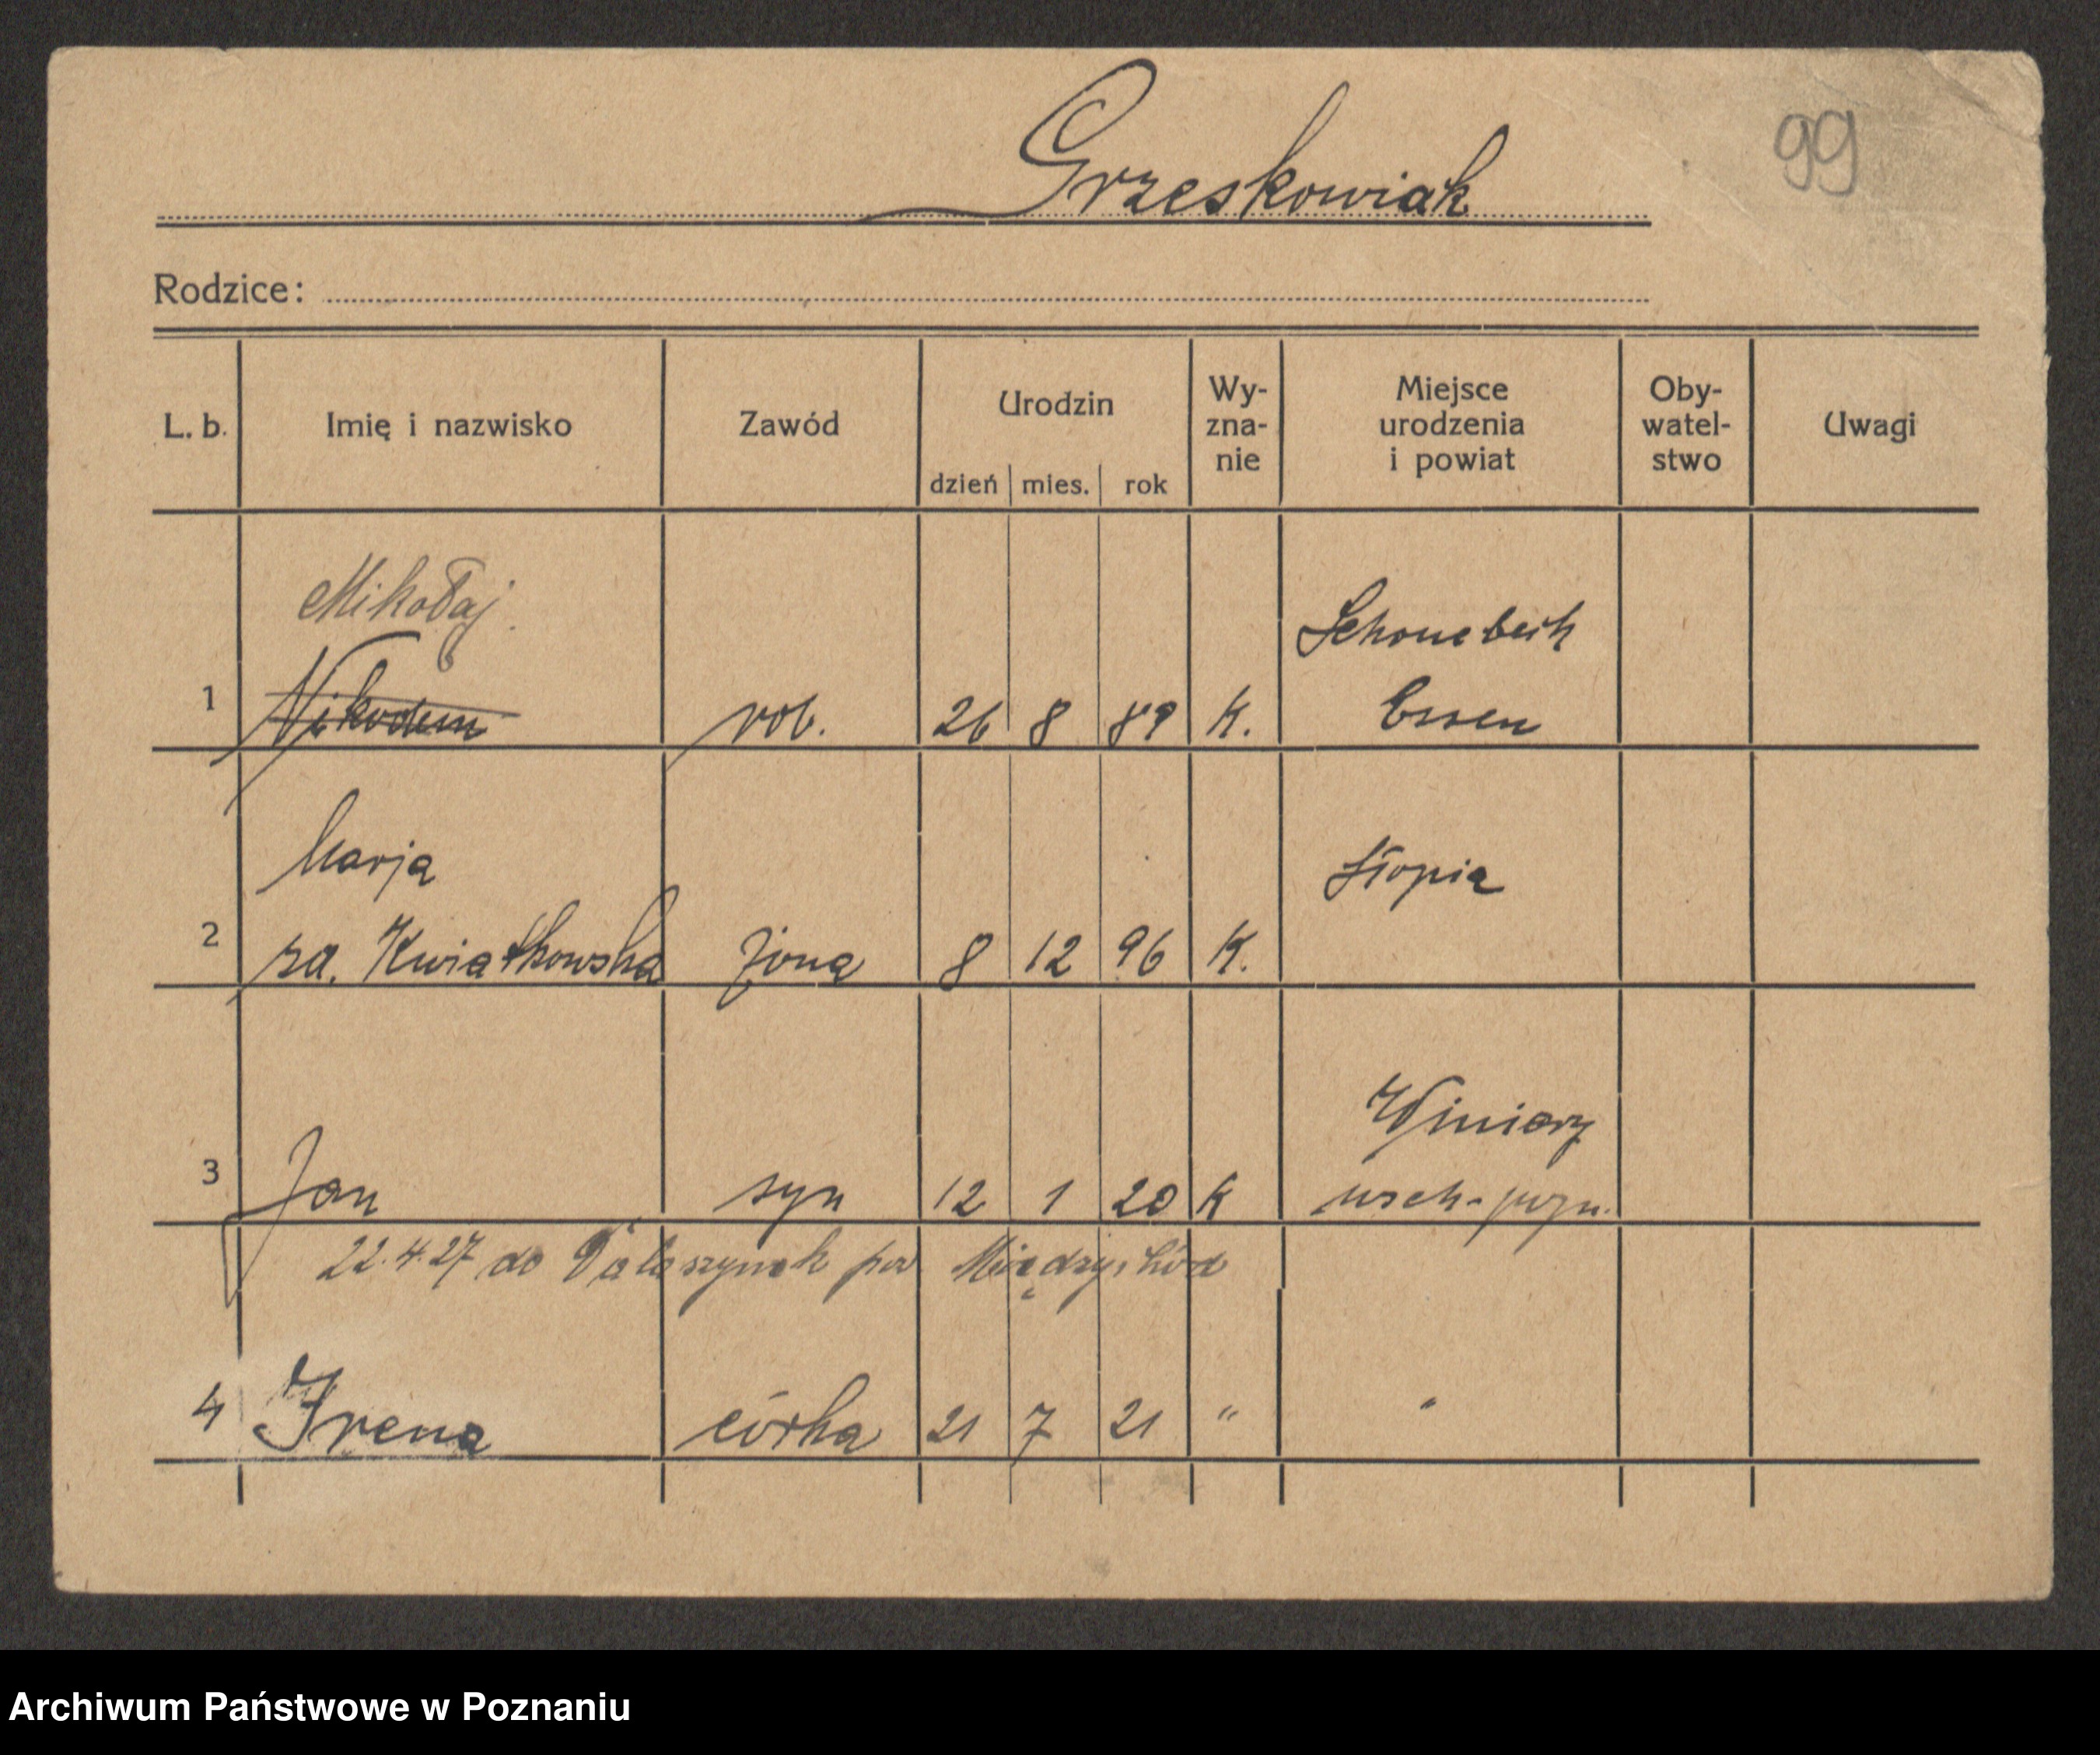 Grzeskowiak
99
Rodzice:
L. b. Imię i nazwisko Zawód Urodzin dzień mies. rok Wy-zna-nie Miejsce urodzenia i powiat Oby-watel-stwo Uwagi
Mikołaj Schonebeck
1 Nikodem rob. 26 8 89 K. Essen
Marja Słopia
2 za. Kwiatkowska żona 8 12 96 K.
Winiary
3 Jan syn 12 1 20 K wsch-pozn.
22.4.27 do pow Międzychód
4 Irena córka 21 7 21 " "
Archiwum Państwowe w Poznaniu